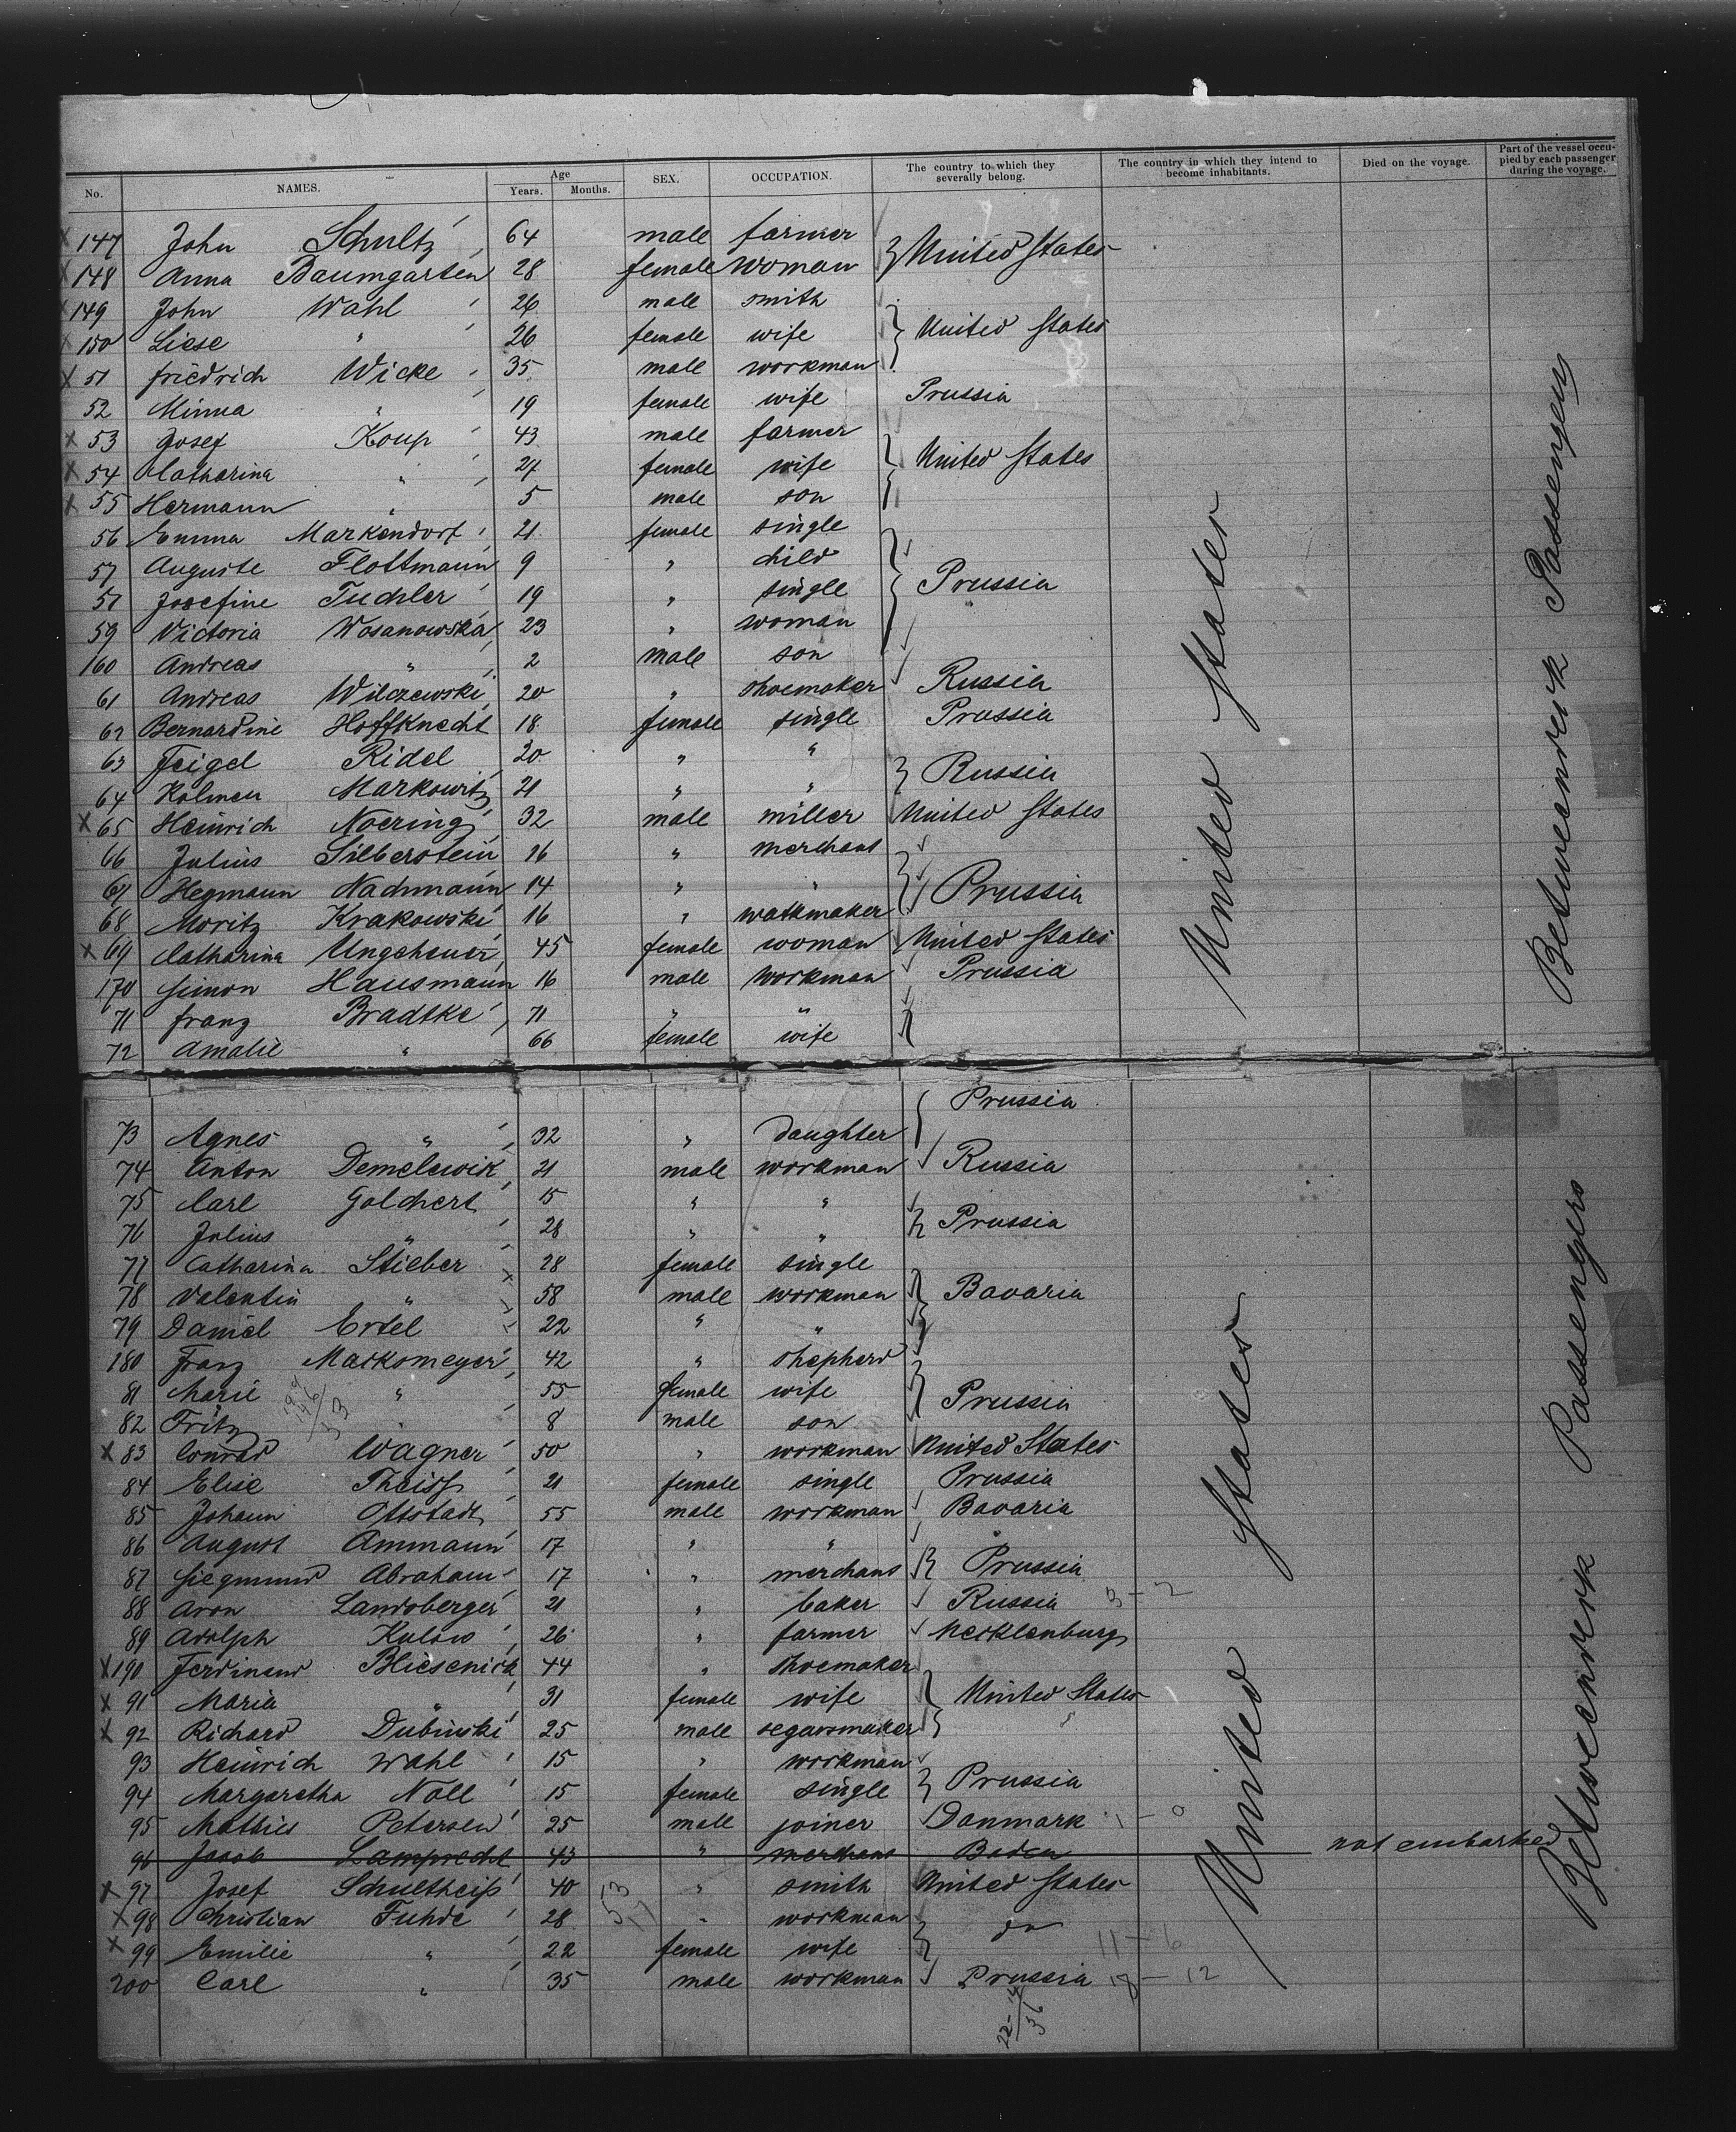 No. NAMES. Age Years. Months. SEX. OCCUPATION. The country to which they severally belong. The country in which they intend to become inhabitants. Died on the voyage. Part of the vessel occupied by each passenger during the voyage.
x 147 John Schultz 64 male farmer } United States
x 148 Anna Baumgarten 28 female woman
x 149 John Wahl 26 male smith
x 150 Liese " 26 female wife } United States
x 51 Friedrich Wicke 35 male workman
52 Minna " 19 female wife Prussia
x 53 Josef Koup 43 male farmer
x 54 Catharina " 24 female wife } United States
x 55 Hermann " 5 male son
56 Emma Markendorf 21 female single
57 Auguste Flottmann 9 " child
51 Josefine Tuchler 19 " single } Prussia
59 Victoria Wosanowska 23 " woman
160 Andreas " 2 male son
61 Andreas Wilczewski 20 " shoemaker Russia
62 Bernardine Hoffknecht 18 female single Prussia
63 Feigel Ridel 20 " "
64 Kolmen Markowitz 21 " " } Russia
x 65 Heinrich Noering 32 male miller United States
66 Julius Silberstein 16 " merchant
67 Hegmann Nachmann 14 " " } Prussia
68 Moritz Krakowski 16 " watkmaker
x 69 Catharina Ungeheuer 45 female woman United States
170 Simon Hausmann 16 male workman Prussia
71 Franz Bradtke 71 " "
72 Amalie " 66 female wife
United States
Betweendeck Passengers
Prussia
73 Agnes " 32 " daughter
74 Anton Demelewik 21 male workman Russia
75 Carl Golchert 15 " "
76 Julius " 28 " " } Prussia
77 Catharina Stieber 28 female single
78 Valentin " 58 male workman } Bavaria
79 Daniel Ertel 22 " "
180 Franz Marksmeyer 42 " shepherd
81 Marie " 55 female wife } Prussia
82 Fritz " 8 male son
x 83 Conrad Wagner 50 " workman United States
84 Elise Theiss 21 female single Prussia
85 Johann Ottstadt 55 male workman Bavaria
86 August Ammann 17 " " "
87 Siegmund Abraham 17 " merchant } Prussia
88 Aron Landsberger 21 " baker Russia 3 - 2
89 Adolph Kulow 26 " farmer Mecklenburg
x 190 Ferdinand Bliesenick 44 " shoemaker
x 91 Maria " 31 female wife } United States
x 92 Richard Dubinski 25 male segarsmaker
93 Heinrich Wahl 15 " workman
94 Margaretha Noll 15 female single } Prussia
95 Mathies Petersen 25 male joiner Danmark 1 - 0
96 Jacob Lamprecht 43 " merchant Baden not embarked
x 97 Josef Schultheiß 40 " smith United States
x 98 Christian Fuhde 28 " workman
x 99 Emilie " 22 female wife } do 11 - 6
200 Carl " 35 male workman Prussia 18 - 12
United States
Betweendeck Passengers